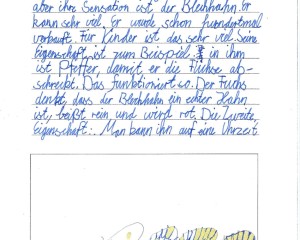 aber ihre Sensation ist der Blechhahn. Er
kann sehr viel. Er wurde schon hundertmal
verkauft. Für Kinder ist das sehr viel. Seine
Eigenschaft ist zum Beispiel: in ihm
ist Pfeffer, damit er die Füchse ab-
schreckt. Das funktioniert so. Der Fuchs
denkt, dass der Blechhahn ein echter Hahn
ist, beißt rein und wird rot. Die zweite
Eigenschaft: Man kann ihn auf eine Uhrzeit